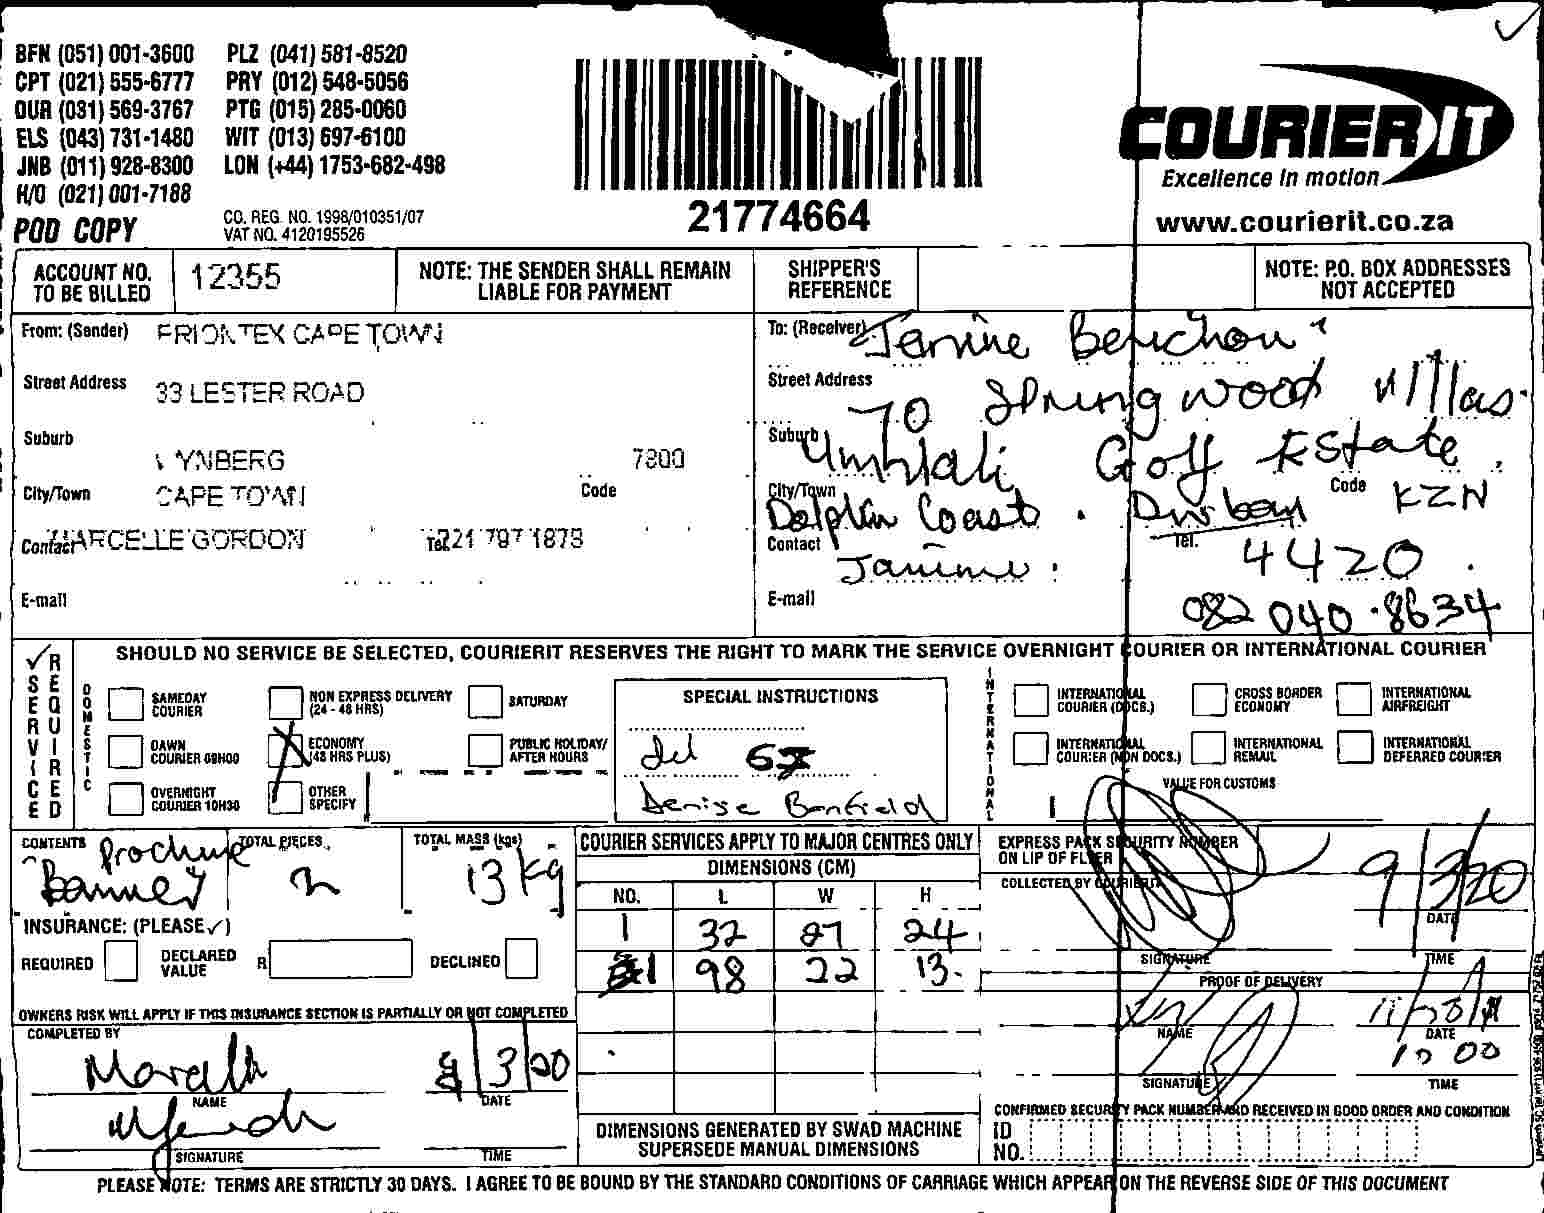 BFN (051) 001-3600 PLZ (041) 581-8520
CPT (021) 555-6777 PRY (012) 548-5056
DUR (031) 569-3767 PTG (015) 285-0060
ELS (043) 731-1480 WIT (013) 697-6100
JNB (011) 928-8300 LON (+44) 1753-682-498
H/O (021) 001-7188
POD COPY
CO. REG. NO. 1998/010351/07
VAT NO. 4120195526
21774664
COURIER IT
Excellence in motion
www.courierit.co.za
ACCOUNT NO. TO BE BILLED 12355
NOTE: THE SENDER SHALL REMAIN LIABLE FOR PAYMENT
SHIPPER'S REFERENCE
NOTE: P.O. BOX ADDRESSES NOT ACCEPTED
From: (Sender) FRIONTEX CAPE TOWN
Street Address 33 LESTER ROAD
Suburb YNBERG 7800
City/Town CAPE TOWN Code
Contact MARCELLE GORDON Tel. 021 797 1878
E-mail
To: (Receiver) Janine
Street Address 70 Springwood Villas
Suburb Umhlali Golf Estate
City/Town Dolphin Coast. Durban Code KZN
Contact Janine Tel. 4420
E-mail 082 040 8634
SERVICE REQUIRED
SHOULD NO SERVICE BE SELECTED, COURIERIT RESERVES THE RIGHT TO MARK THE SERVICE OVERNIGHT COURIER OR INTERNATIONAL COURIER
DOMESTIC
SAMEDAY COURIER
NON EXPRESS DELIVERY (24 - 48 HRS)
SATURDAY
DAWN COURIER 09H00
ECONOMY (48 HRS PLUS)
PUBLIC HOLIDAY/ AFTER HOURS
OVERNIGHT COURIER 10H30
OTHER SPECIFY
SPECIAL INSTRUCTIONS
Denise Banfield
INTERNATIONAL
INTERNATIONAL COURIER (DOCS.)
CROSS BORDER ECONOMY
INTERNATIONAL AIRFREIGHT
INTERNATIONAL COURIER (NON DOCS.)
INTERNATIONAL REMAIL
INTERNATIONAL DEFERRED COURIER
VALUE FOR CUSTOMS
CONTENTS
TOTAL PIECES 2
TOTAL MASS (kgs) 13 kg
INSURANCE: (PLEASE ✓)
REQUIRED
DECLARED VALUE R
DECLINED
OWNERS RISK WILL APPLY IF THIS INSURANCE SECTION IS PARTIALLY OR NOT COMPLETED
COMPLETED BY
NAME
9/3/20
DATE
SIGNATURE
TIME
COURIER SERVICES APPLY TO MAJOR CENTRES ONLY
DIMENSIONS (CM)
NO. L W H
1 32 27 24
1 98 22 13
DIMENSIONS GENERATED BY SWAD MACHINE SUPERSEDE MANUAL DIMENSIONS
EXPRESS PACK SECURITY NUMBER ON LIP OF FLYER
COLLECTED BY COURIERIT
9/3/20
DATE
SIGNATURE
TIME
PROOF OF DELIVERY
NAME
DATE
SIGNATURE
TIME
CONFIRMED SECURITY PACK NUMBER AND RECEIVED IN GOOD ORDER AND CONDITION
ID NO.
PLEASE NOTE: TERMS ARE STRICTLY 30 DAYS. I AGREE TO BE BOUND BY THE STANDARD CONDITIONS OF CARRIAGE WHICH APPEAR ON THE REVERSE SIDE OF THIS DOCUMENT